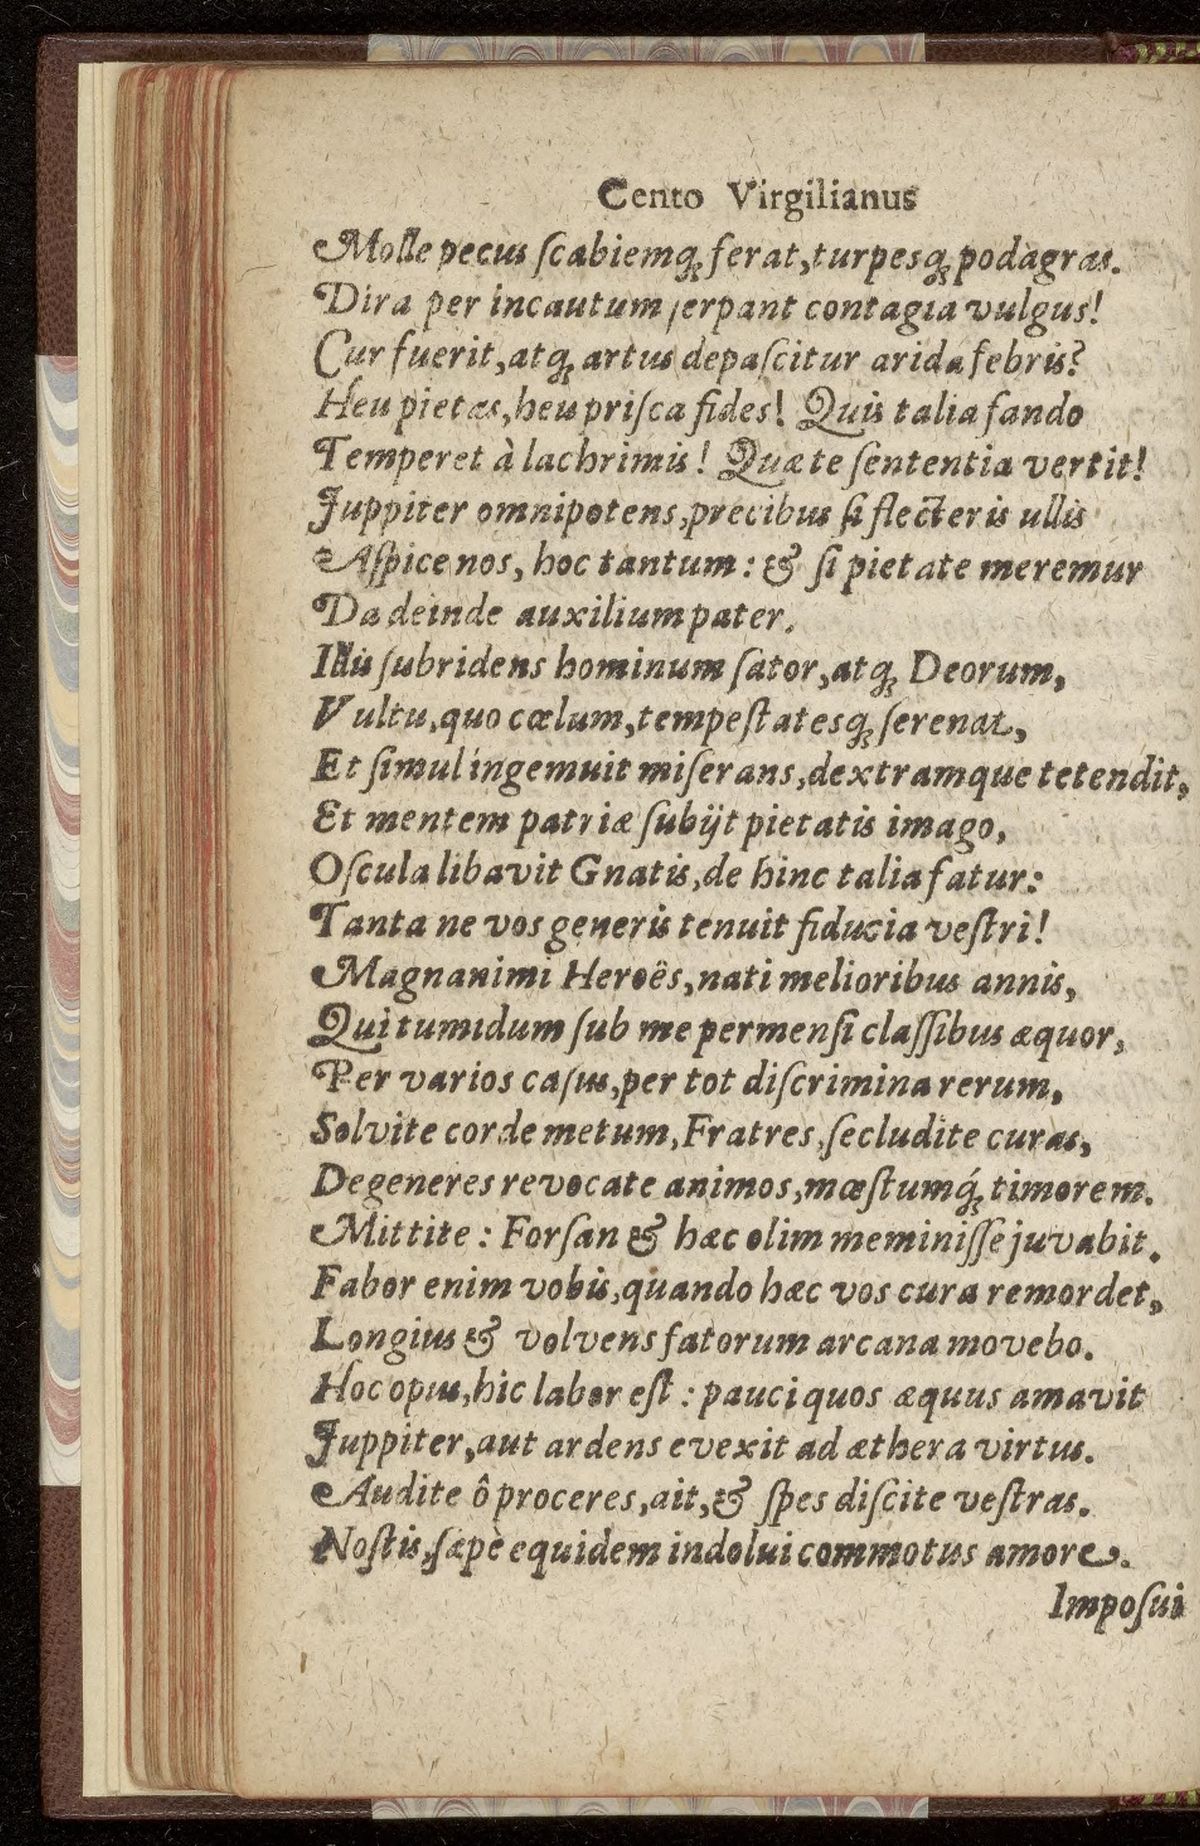 Cento Virgilianus
Molle pecus ſcabiemq́ꝫ ferat, turpesqꝫ podagras.
Dira per incautum ſerpant contagia vulgus!
Cur fuerit, atqꝫ artus depaſcitur arida febris?
Heu pietas, heu priſca fides! Quis talia fando
Temperet à lachrimis! Quæ te ſententia vertit!
Juppiter omnipotens, precibus ſi flecteris ullis
Aſpice nos, hoc tantum: & ſi pietate meremur
Da deinde auxilium pater.
Illis ſubridens hominum ſator, atqꝫ Deorum,
Vultu, quo cœlum, tempeſtatesqꝫ ſerenat,
Et ſimul ingemuit miſerans, dextramque tetendit,
Et mentem patriæ ſubijt pietatis imago,
Oſcula libavit Gnatis, de hinc talia fatur:
Tanta ne vos generis tenuit fiducia veſtri!
Magnanimi Heroës, nati melioribus annis,
Qui tumidum ſub me permenſi claſſibus æquor,
Per varios caſus, per tot diſcrimina rerum,
Solvite corde metum, Fratres, ſecludite curas,
Degeneres revocate animos, mœſtumq́ꝫ timorem.
Mittite: Forſan & hæc olim meminiſſe juvabit.
Fabor enim vobis, quando hæc vos cura remordet,
Longius & volvens fatorum arcana movebo.
Hoc opus, hic labor eſt: pauci quos æquus amavit
Juppiter, aut ardens evexit ad æthera virtus.
Audite ô proceres, ait, & ſpes diſcite veſtras.
Noſtis, ſæpè equidem indolui commotus amore.
Impoſui